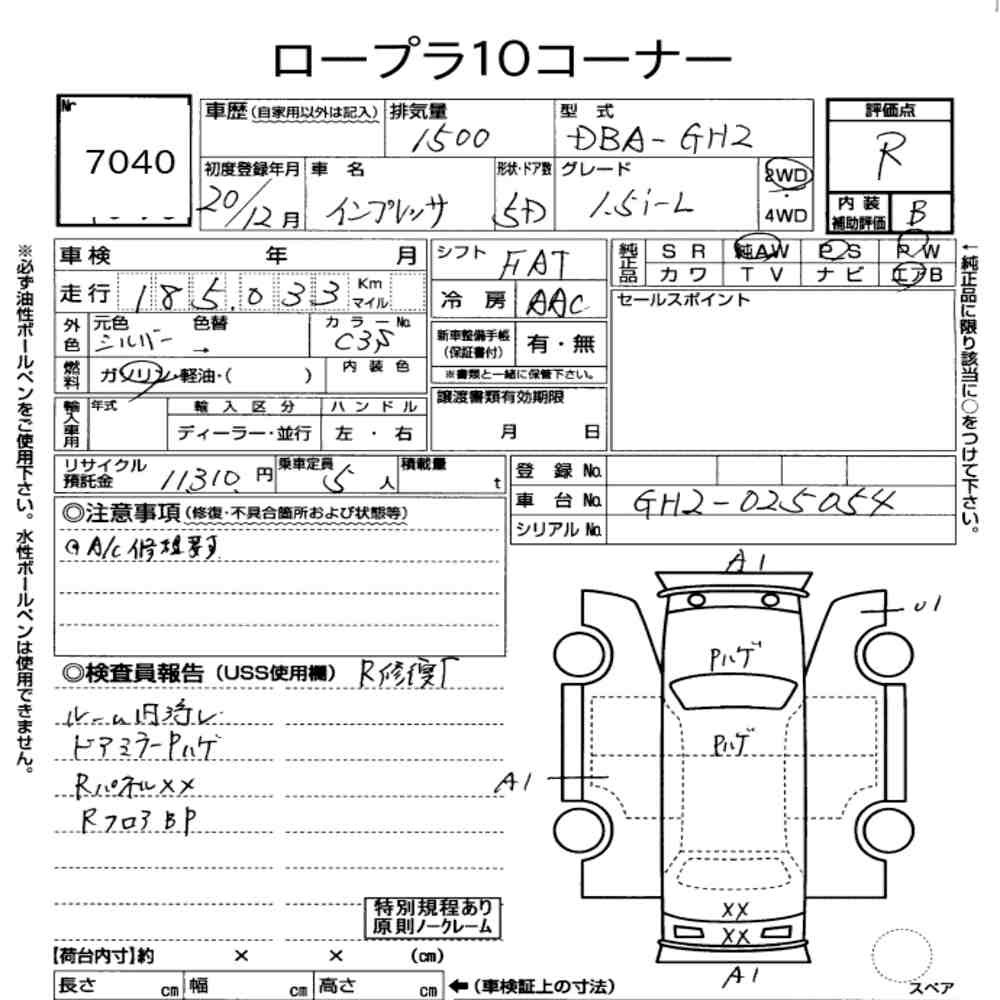 ロープラ10コーナー
Nr
7040
車歴(自家用以外は記入) 排気量 1500 型式 DBA-GH2
初度登録年月 20/12月 車名 インプレッサ 形状・ドア数 5D グレード 1.5i-L 2WD・4WD
評価点 R
内装補助評価 B
車検 年 月 シフト FAT
純正品 SR 純AW PS PW
カワ TV ナビ エアB
走行 185.033 Km マイル 冷房 AAC
セールスポイント
外色 元色 シルバー 色替 → カラーNo. C35
新車整備手帳(保証書付) 有・無
※書類と一緒に保管下さい。
燃料 ガソリン・軽油・( ) 内装色
譲渡書類有効期限 月 日
輸入車用 年式 輸入区分 ハンドル
ディーラー・並行 左・右
リサイクル預託金 11,310.円 乗車定員 5人 積載量 t
登録No.
車台No. GH2-025054
シリアルNo.
◎注意事項(修復・不具合箇所および状態等)
A/C修理要す
◎検査員報告(USS使用欄) R修復了
ドアミラーPハゲ
Rパネルxx
RフロアBP
特別規程あり
原則ノークレーム
【荷台内寸】約 × × (cm)
長さ cm 幅 cm 高さ cm ←(車検証上の寸法)
※必ず油性ボールペンをご使用下さい。水性ボールペンは使用できません。
←純正品に限り該当に○をつけて下さい。
A1
U1
Pハゲ
Pハゲ
A1
XX
XX
A1
スペア